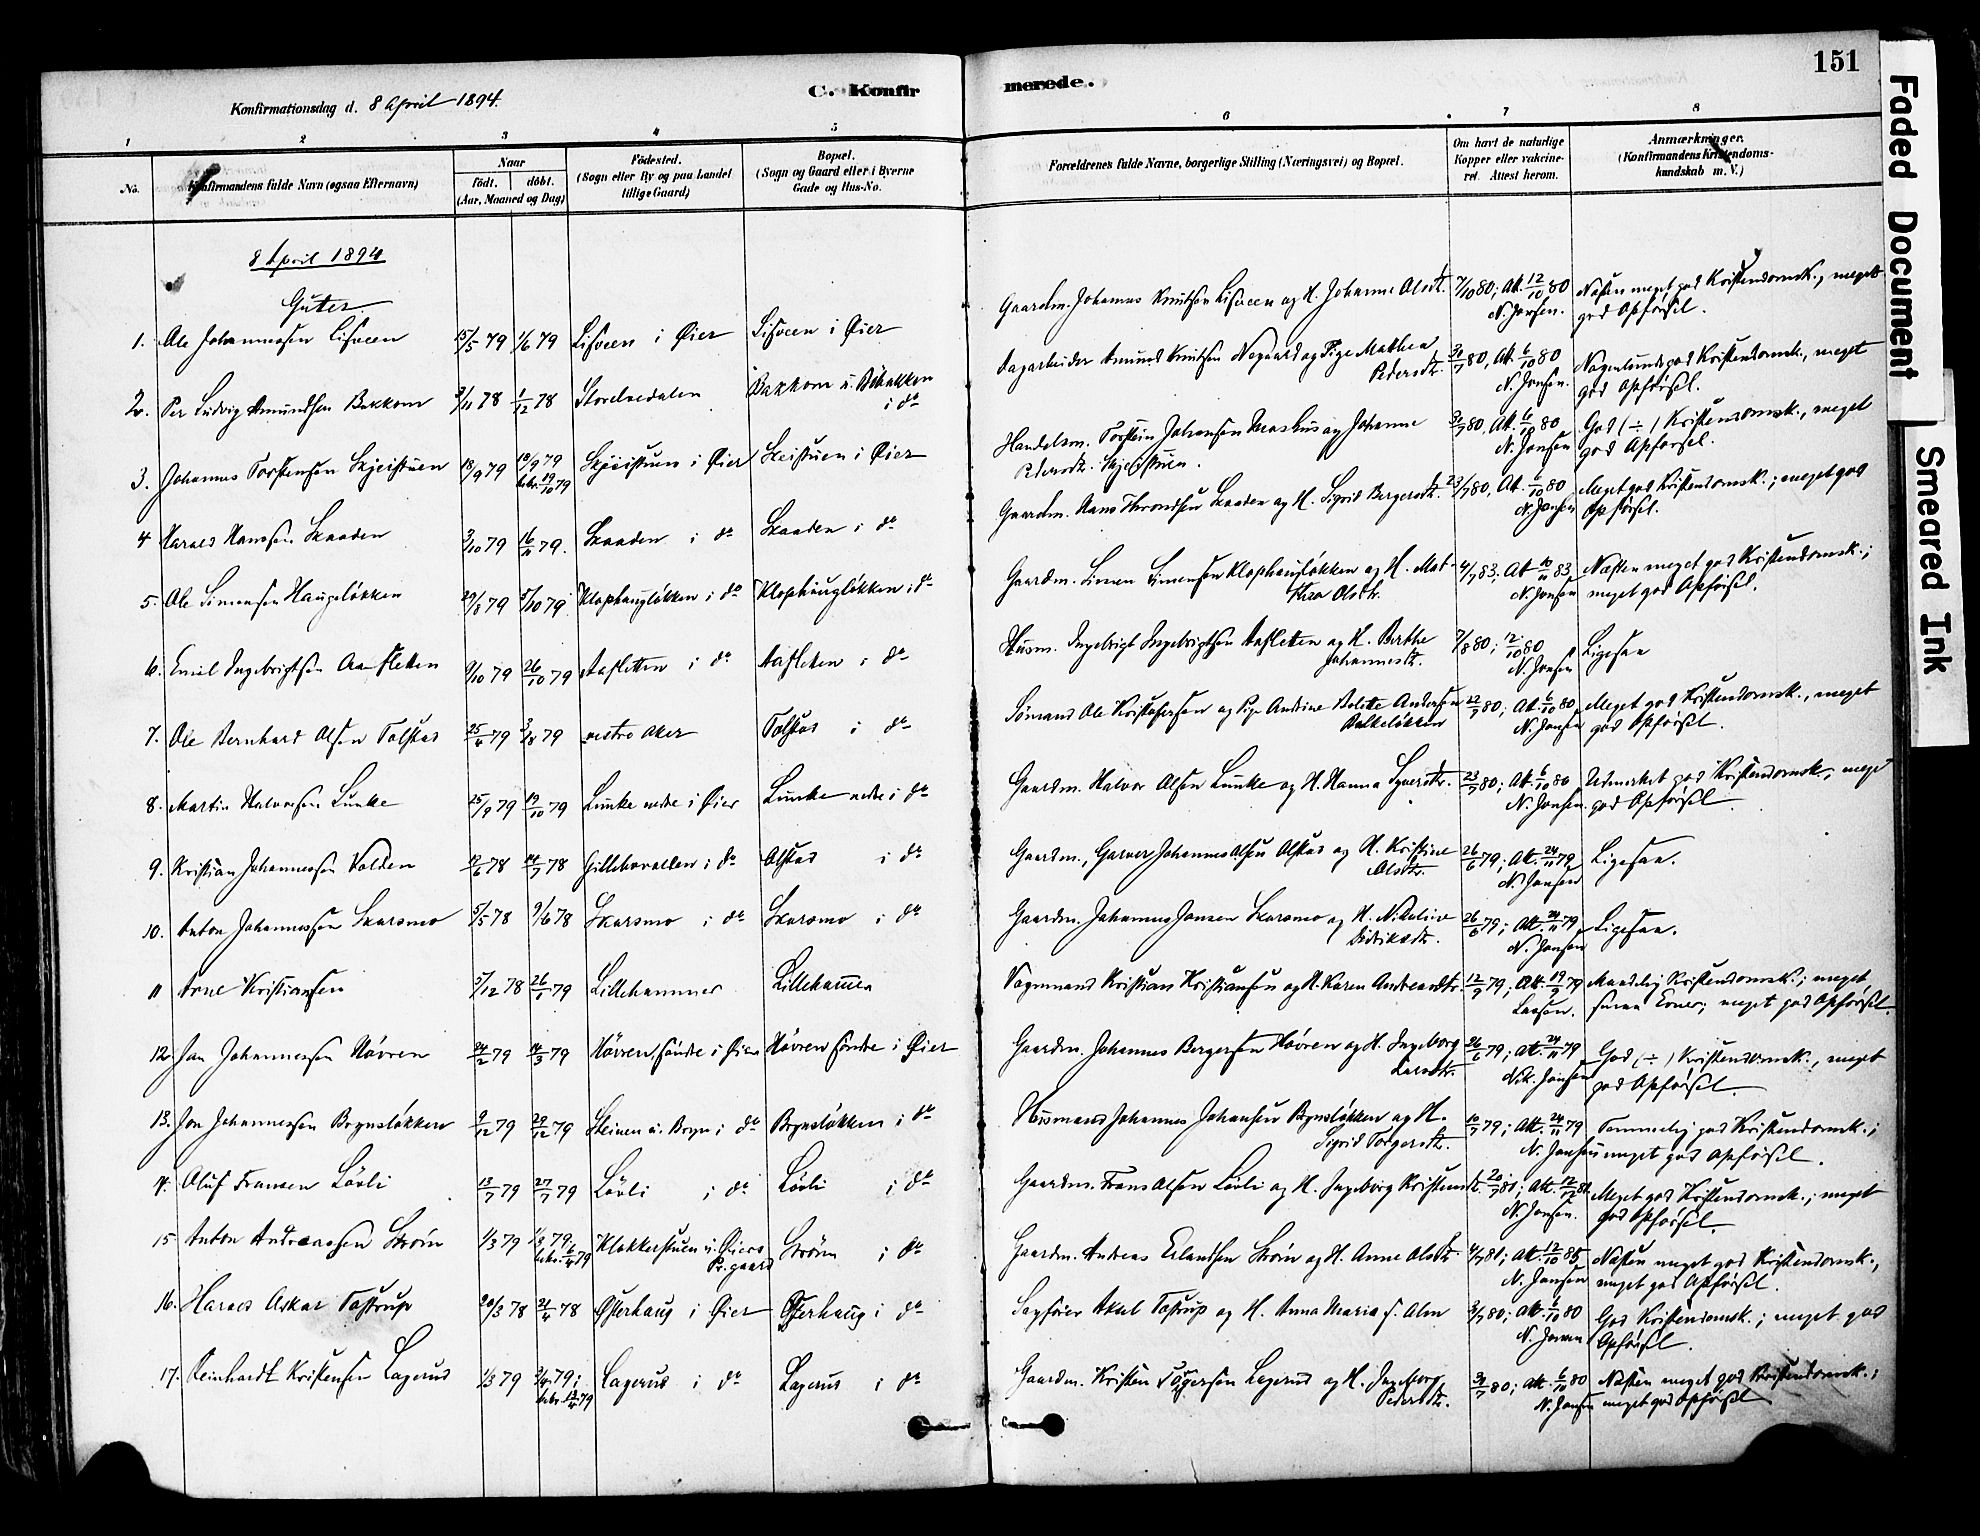 151
C. Konfirmerede.
Konfirmationsdag d. 8 April 1894.
1 2 3 4 5 6 7 8
No.
Konfirmandens fulde Navn (ogsaa Efternavn)
Naar
födt. döbt.
(Aar, Maaned og Dag)
Födested.
(Sogn eller By og paa Landet
tillige Gaard)
Bopæl.
(Sogn og Gaard eller i Byerne
Gade og Hus-No.
Forældrenes fulde Navne, borgerlige Stilling (Næringsvei) og Bopæl.
Om havt de naturlige
Kopper eller vakcine-
ret. Attest herom.
Anmærkninger.
(Konfirmandens Kristendoms-
kundskab m. V.)
8 April 1894
Gutter
1. Ole Johannessen Lisveen 15/5 79 1/6 79 Lisveen i Øier Lisveen i Øier Gaardm. Johannes Knutsen Lisveen og H. Johanne Olsdtr. 7/10 80; Att. 12/10 80 Næsten meget god Kristendomsk., meget
N. Jensen. god Opførsel.
2. Per Ludvig Amundsen Bakkom 3/11 78 1/12 78 Storelvedalen Bakkom i do Dagarbeider Amund Knutsen Nygaard og Pige Mathea 80, Att. 6/10 80 Nogenlunde god Kristendomsk., meget
Pedersdtr. N. Jensen. god Opførsel.
3. Johannes Torstensen Skjeistuen 18/9 79 18/9 79 Skjeistuen i Øier Skeistuen i Øier Handelsm. Torstein Johansen og Johanne 80, Att. 6/10 80 God (÷) Kristendomsk., meget
bekr. 19/10 79 Pedersdtr. Skjeistuen. N. Jensen god Opførsel.
4 Harald Hanssen Skaaden 3/10 79 16/11 79. Skaaden i do Skaaden i do Gaardm. Hans Throndsen Skaaden og H. Sigrid Bergersdtr. 23/7 80, Att. 6/10 80 Meget god Kristendomsk.; meget god
N. Jensen Opførsel.
5. Ole Simensen Haugeløkken 29/8 79 5/10 79 Klophaugløkken i do Klophaugløkken i do Gaardm. Simen Simensen Klophaugløkken og H. Mat- 4/7 83; Att. 10/11 83 Næsten meget god Kristendomsk.;
thea Olsdtr. N. Jensen meget god Opførsel.
6. Emil Ingebrigtsen Aasletten 9/10 79 26/10 79 Aasletten i do Aasletten i do Husm. Ingebrigt Ingebrigtsen Aasletten og H. Berthe 7/8 80; 12/10 80 Ligesaa
Johannesdtr. N. Jensen
7. Ole Bernhard Olsen Tolstad 25/6 79 3/8 79 vestre Aker Tolstad i do Sömand Ole Kristofersen og Pige Andrine Bolette Andersen 22/7 80; Att. 6/10 80 Meget god Kristendomsk., meget
Bakkeløkken N. Jensen god Opførsel.
8. Martin Halvorsen Lunke 25/9 79 19/10 79 Lunke nedre i Øier Lunke nedre i do Gaardm. Halvor Olsen Lunke og H. Hanna Syversdtr. 23/7 80; Att. 6/10 80 Udmerket god Kristendomsk., meget
N. Jensen. god Opførsel.
9. Kristian Johannessen Volden 12/6 78 14/7 78 Gillebovolden i do Olstad i do Gaardm., Garver Johannes Olsen Olstad og H. Kristine 26/6 79; Att. 24/11 79 Ligesaa.
Olsdtr. N. Jensen
10. Anton Johannessen Skarsmo 5/5 78 9/6 78 Skarsmo i do Skarsmo i do Gaardm. Johannes Jensen Skarsmo og H. Nikoline 26/6 79; Att. 24/11 79 Ligesaa.
Didriksdtr. N. Jensen
11 Arne Kristiansen 5/12 78 26/1 79 Lillehammer Lillehammer Vognmand Kristian Kristiansen og H. Karen Andreasdtr. 12/9 79; Att. 19/9 79 Maadelig Kristendomsk.; meget
Larsen. smaa Evner; meget god Opførsel.
12. Jan Johannessen Høvren 24/2 79 14/3 79 Høvren, søndre i Øier Høvren søndre i Øier Gaardm. Johannes Bergersen Høvren og H. Ingeborg 26/6 79; Att. 24/11 79 God (÷) Kristendomsk., meget
Larsdtr. Nik. Jensen god Opførsel.
13. Jon Johannessen Brynsløkken 9/12 79 29/12 79 Steinen u. Bryn i do Brynsløkken i do Husmand Johannes Johansen Brynsløkken og H. 10/7 79; Att. 24/11 79 Temmelig god Kristendomsk.;
Sigrid Torgersdtr. N. Jensen meget god Opførsel.
14. Oluf Fransen Lövli 13/7 79 27/7 79 Lövli i do Lövli i do Gaardm. Frans Olsen Lövli og H. Ingeborg Kristensdtr. Meget god Kristendomsk.; meget
N. Jensen. god Opførsel.
15 Anton Andreassen Strøm 1/3 79 1/3 79 Klokkerstuen u. Øiers Strøm i do Gaardm. Andreas Erlandsen Strøm og H. Anne Olsdtr. 4/7 81; Att. Næsten meget god Kristendomsk.,
bekr. 6/4 79 Pr.gaard N. Jensen meget god Opførsel.
16. Harald Oskar Tostrup 20/3 78 21/4 78 Østerhaug i Øier Østerhaug i do Sagfører Aksel Tostrup og H. Anna Maria f. Alm 80; Att. 6/10 80 God Kristendomsk.; meget god
N. Jensen Opførsel.
17. Reinhardt Kristensen Lagerud 1/3 79 79; Lagerud i do Lagerud i do Gaardm. Kristen Torgersen Lagerud og H. Ingeborg 80; Att. 6/10 80 Næsten meget god Kristendomsk.;
bekr. 13/4 79 Pedersdtr. N. Jensen meget god Opførsel
Faded Document
Smeared Ink